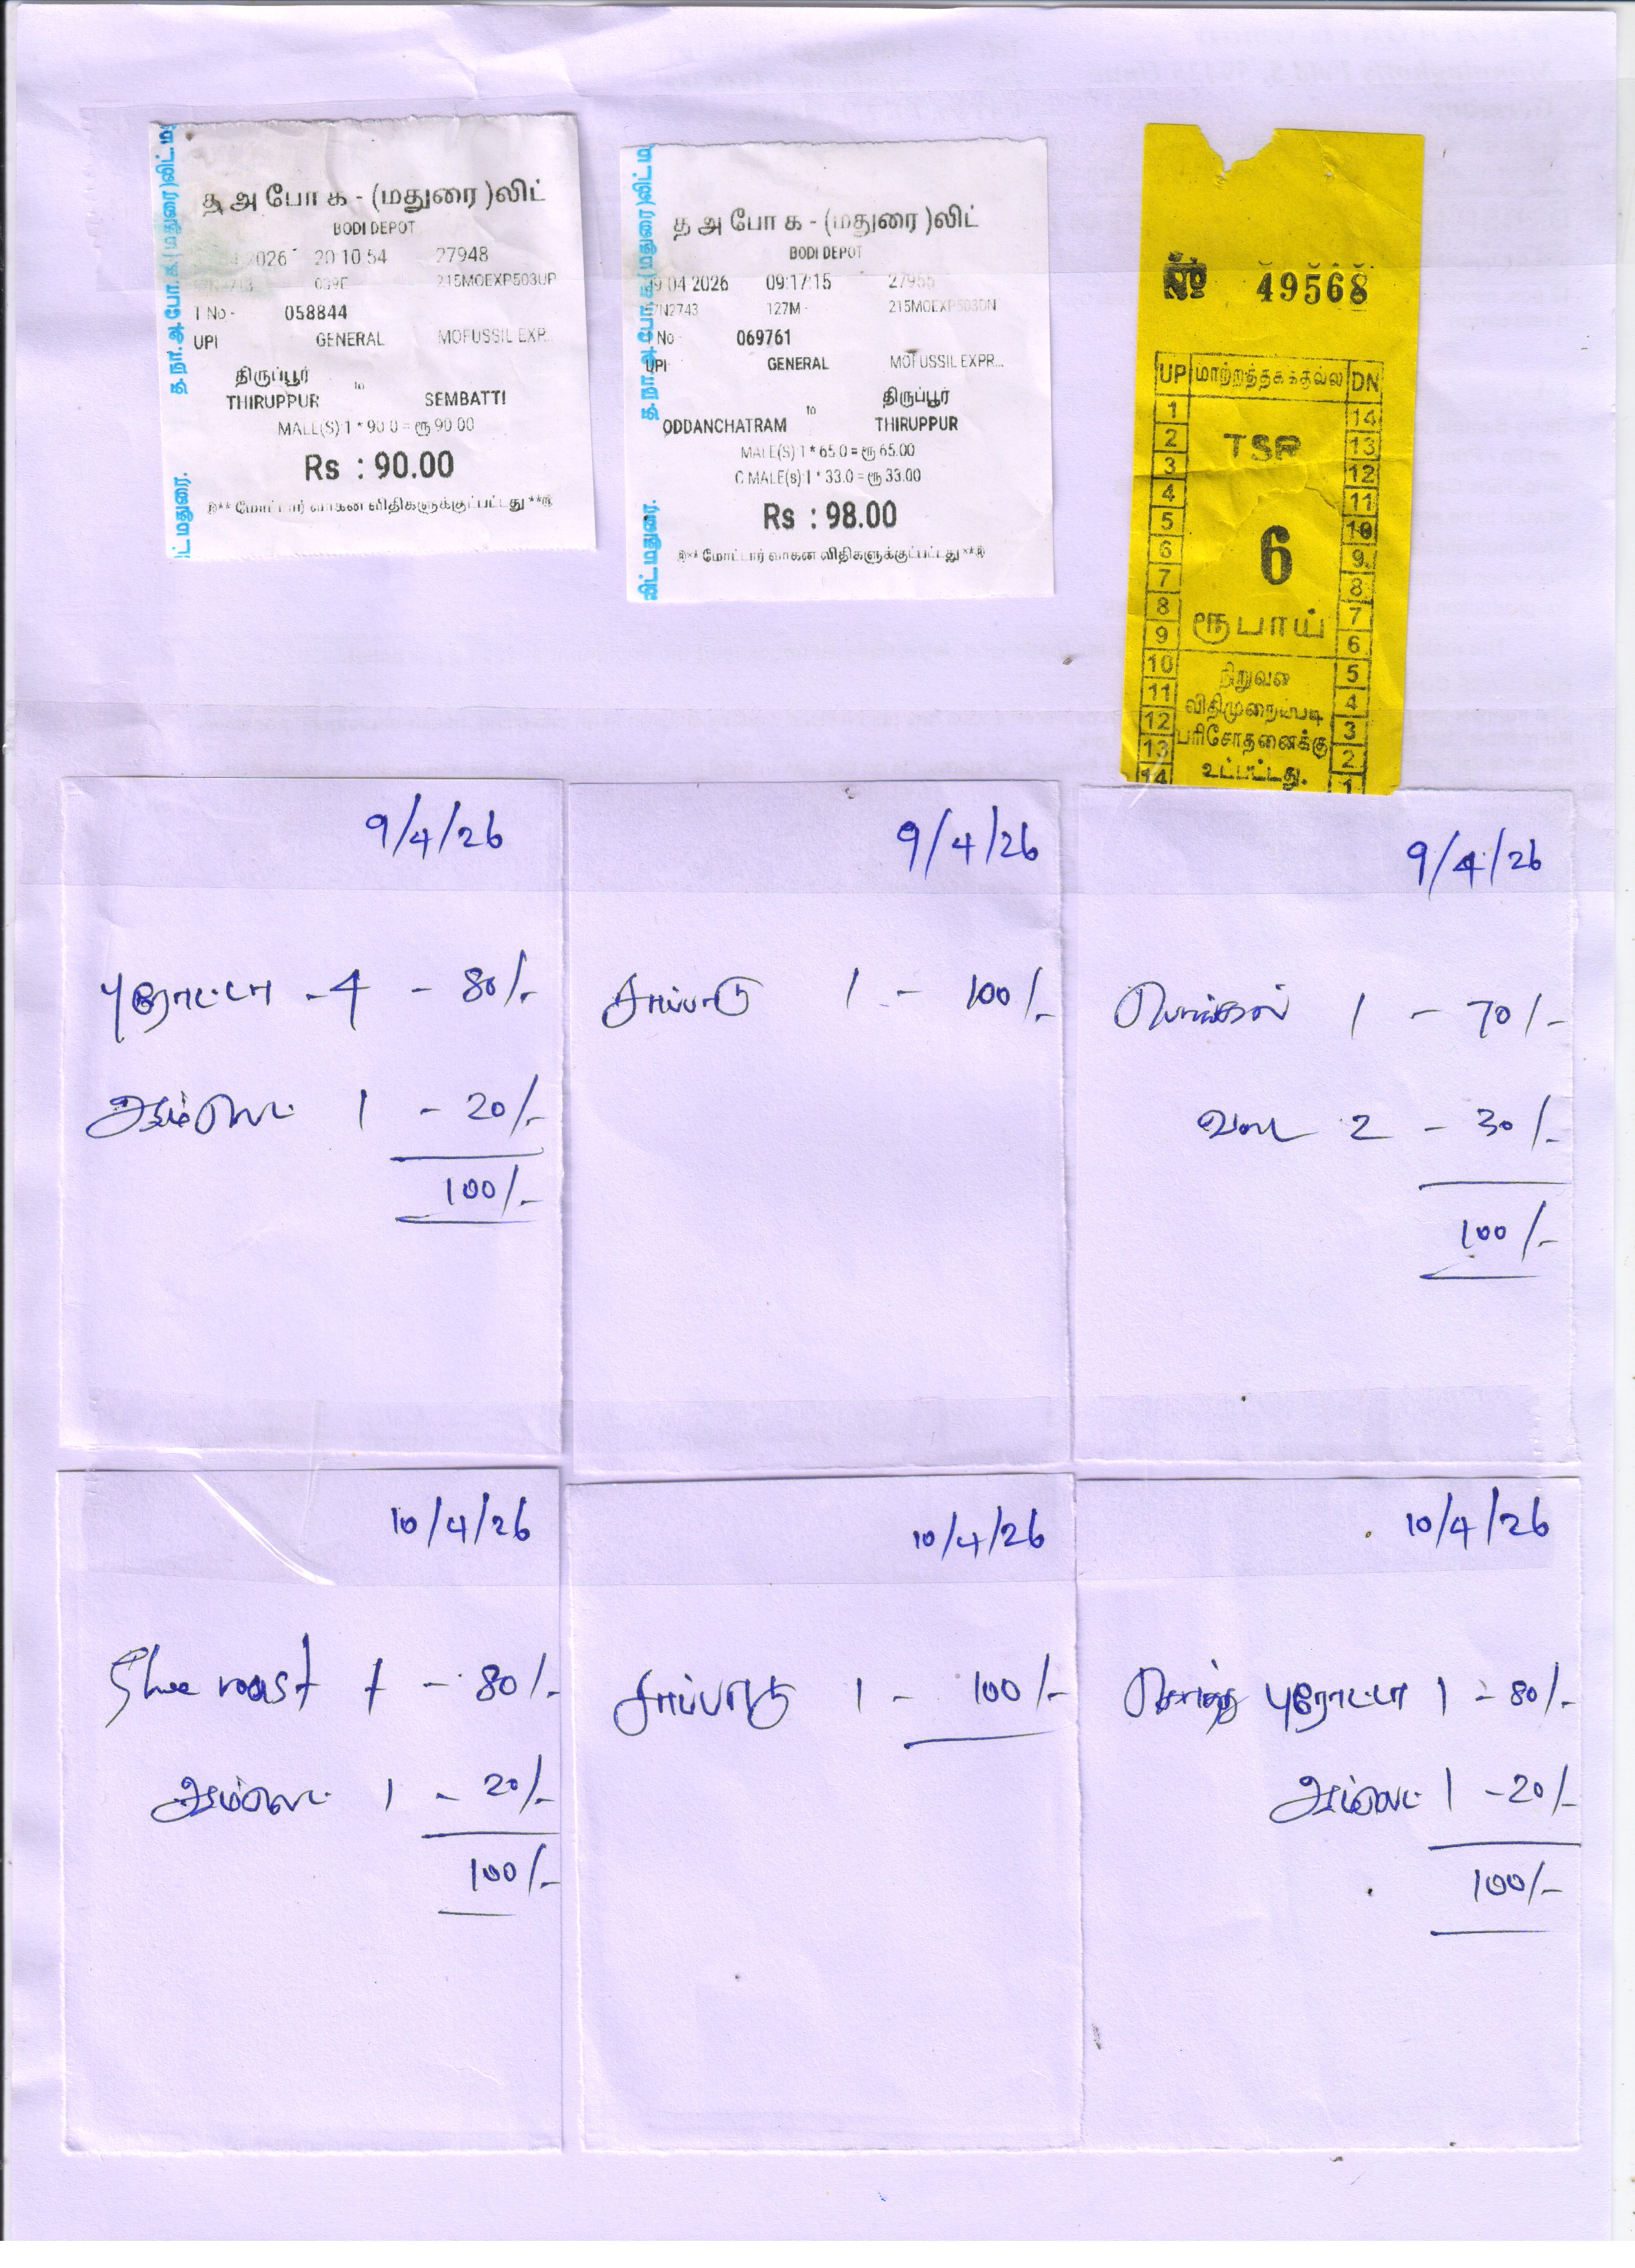 த அ போ க - (மதுரை )லிட்
BODI DEPOT
2026 20:10:54 27948
039E 215MOEXP503UP
T No - 058844
UPI GENERAL MOFUSSIL EXP...
திருப்பூர்
to
THIRUPPUR SEMBATTI
MALE(S):1 * 90.0 = ரூ 90.00
Rs : 90.00
மோட்டார் வாகன விதிகளுக்குட்பட்டது
த.நா.அ.போ.க.(மதுரை)லிட்.
லிட் மதுரை.
த அ போ க - (மதுரை )லிட்
BODI DEPOT
09 04 2026 09:17:15 27955
N2743 127M - 215MOEXP503DN
No - 069761
UPI GENERAL MOFUSSIL EXPR...
திருப்பூர்
to
ODDANCHATRAM THIRUPPUR
MALE(S) 1 * 65.0 = ரூ 65.00
C MALE(s):1 * 33.0 = ரூ 33.00
Rs : 98.00
மோட்டார் வாகன விதிகளுக்குட்பட்டது
த.நா.அ.போ.க.(மதுரை)லிட்
லிட் மதுரை.
No 49568
UP மாற்றத்தக்கதல்ல DN
1 14
2 TSR 13
3 12
4 11
5 10
6 6 9
7 8
8 7
9 ரூபாய் 6
10 நிறுவன 5
11 விதிமுறைப்படி 4
12 பரிசோதனைக்கு 3
13 உட்பட்டது. 2
14 1
9/4/26
புரோட்டா - 4 - 80/-
ஆம்லெட் 1 - 20/-
100/-
9/4/26
சாப்பாடு 1 - 100/-
9/4/26
பொங்கல் 1 - 70/-
வடை 2 - 30/-
100/-
10/4/26
Ghee roast 1 - 80/-
ஆம்லெட் 1 - 20/-
100/-
10/4/26
சாப்பாடு 1 - 100/-
10/4/26
கொத்து புரோட்டா 1 - 80/-
ஆம்லெட் 1 - 20/-
100/-